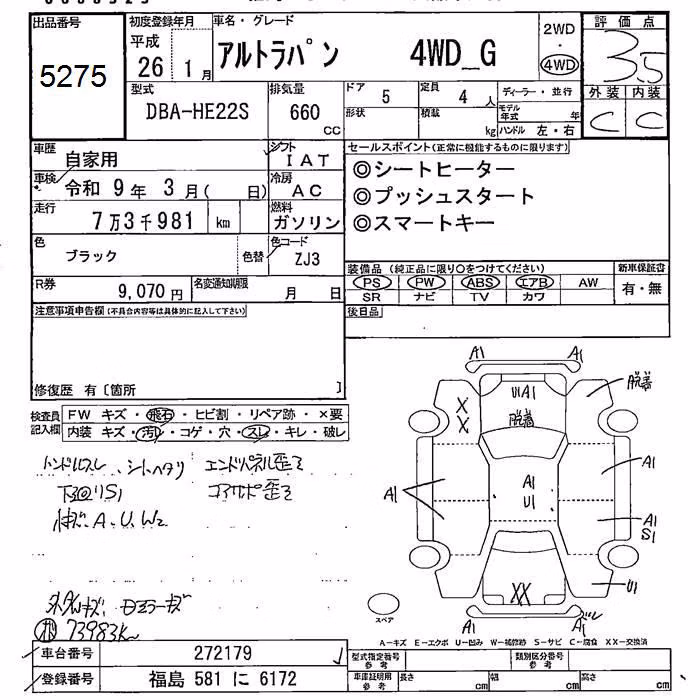 出品番号
5275
初度登録年月
平成
26 1月
車名・グレード
アルトラパン 4WD_G
2WD
・
4WD
評価点
3.5
外装 内装
C C
型式
DBA-HE22S
排気量
660
cc
ドア
5
形状
定員
4 人
積載
kg
ディーラー・並行
モデル年式 年
ハンドル 左・右
車歴
自家用
シフト
IAT
車検
令和 9年 3月( 日)
冷房
AC
走行
7万3千981 km
燃料
ガソリン
色
ブラック
色替
色コード
ZJ3
R券
9,070円
名変通知期限
月 日
セールスポイント(正常に機能するものに限ります)
◎シートヒーター
◎プッシュスタート
◎スマートキー
装備品(純正品に限り○をつけてください)
PS PW ABS エアB AW
SR ナビ TV カワ
新車保証書
有・無
後日品
注意事項申告欄(不具合内容等は具体的に記入して下さい)
修復歴 有〔箇所 〕
検査員記入欄
FW キズ・飛石・ヒビ割・リペア跡・×要
内装 キズ・汚レ・コゲ・穴・スレ・キレ・破レ
ハンドルスレ、シートヘタリ
エンドパネル歪ミ
下回リS1
コアサポ歪ミ
A、U、W2
73983K
A1
A1
UA1
脱着
脱着
X
X
A1
U1
A1
A1
A1
S1
U1
XX
A1
A1
スペア
A-キズ E-エクボ U-凹み W-補修跡 S-サビ C-腐食 XX-交換済
車台番号
272179
登録番号
福島 581 に 6172
型式指定番号
参考
類別区分番号
参考
車庫証明用
参考
長さ cm
幅 cm
高さ cm